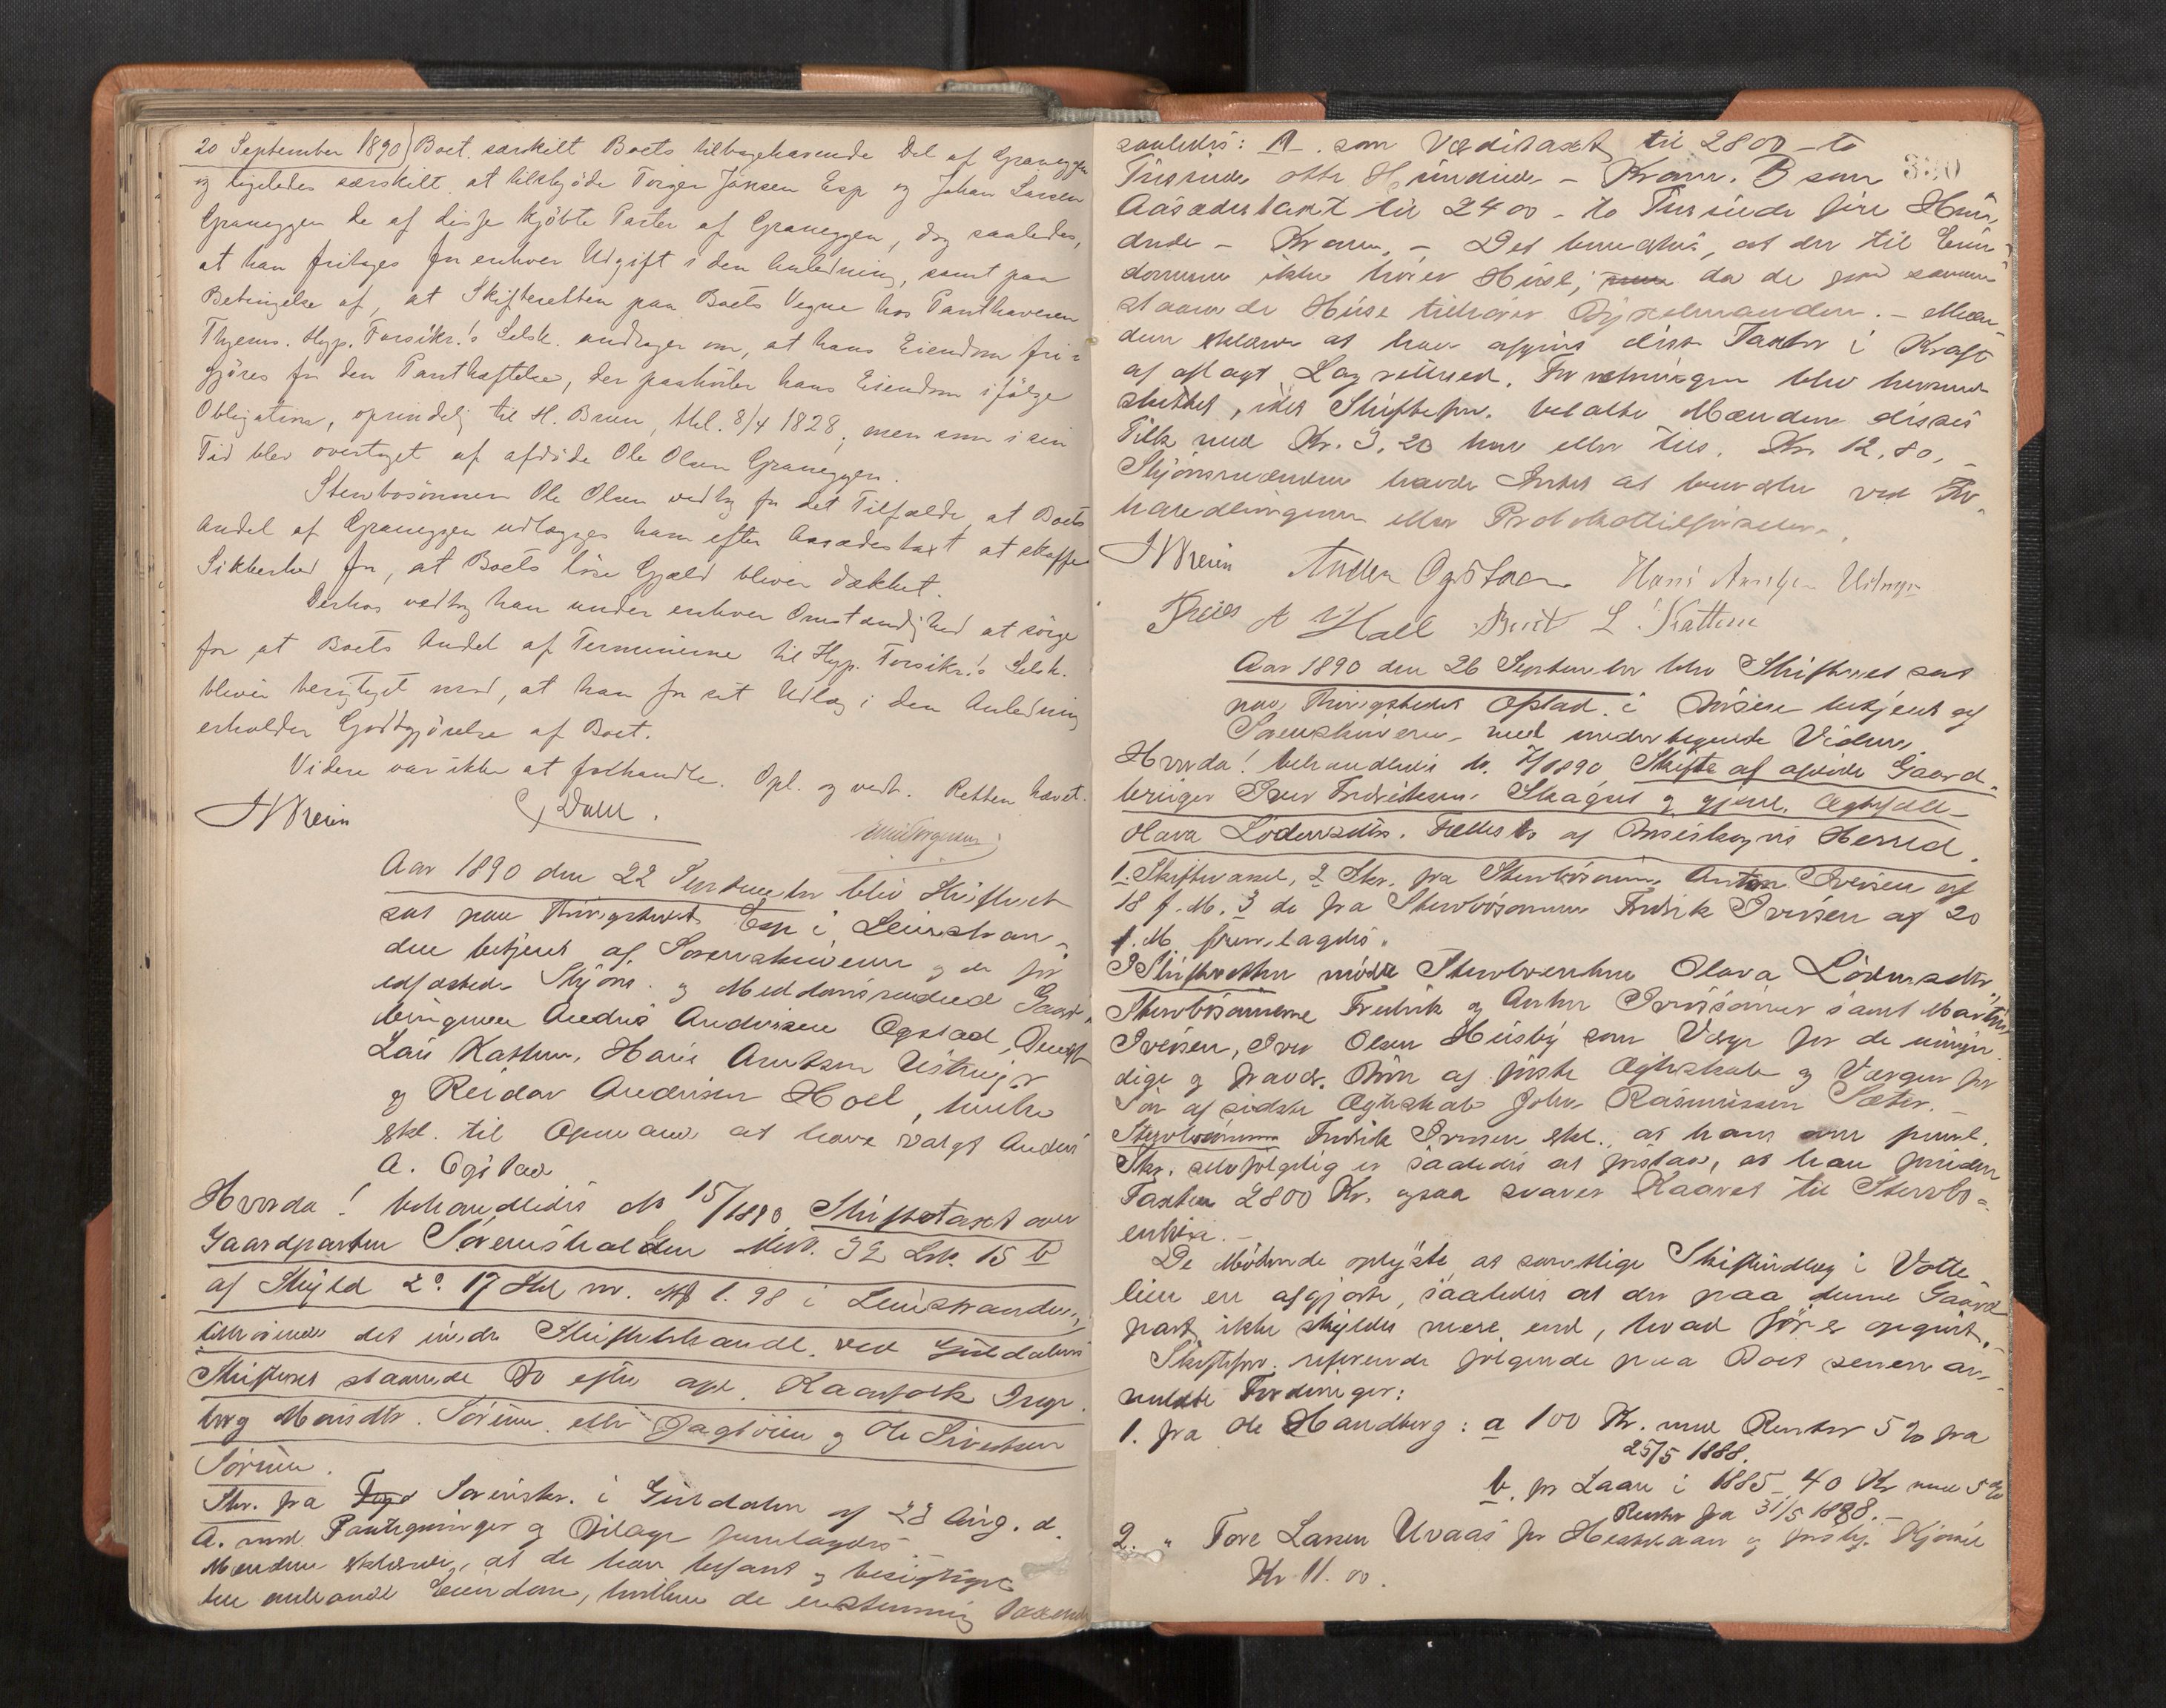 20 September 1890) Boet særskilt Boets tilbagehavende Del af Graneggen
og ligeledes særskilt at tilbyde Torger Jonsen Esp og Johan Larsen
Graneggen de af disse kjöbte Parter af Graneggen, dog saaledes,
at han fritages for enhver Udgift i den Anledning, samt paa
Betingelse af, at Skifteretten paa Boets Vegne hos Panthaveren
Thjems. Hyp. Forsikr.s Selsk. andrager om, at hans Eiendom fri-
gjöres for den Panthæftelse, der paahviler hans Eiendom ifölge
Obligation, oprindelig til H. Bruun, thl. 8/4 1828, men som i sin
Tid blev overtaget af afdöde Ole Olsen Graneggen.
Stervbosönnen Ole Olsen vedtog for det Tilfælde, at Boets
Andel af Graneggen udlægges ham efter Aasædestaxt at skaffe
Sikkerhed for, at Boets löse Gjæld bliver dækket.
Derhos vedtog han under enhver Omstændighed at sörge
for at Boets Andel af Terminerne til Hyp. Forsikr.s Selsk.
bliver berigtiget mod, at han for sit Udlæg i den Anledning
erholder Godtgjörelse af Boet.
Videre var ikke at forhandle. Opl. og vedt. Retten hævet.
Dahl.
Aar 1890 den 22 September blev Skifteret
sat paa Thingstedet Esp i Leinstran-
den betjent af Sorenskriveren og de för
edfæstede Skjöns. og Meddomsmænd Gaard-
brugerne Anders Andersen Ogstad, Bengt
Lars Kattem, Hans Arntsen Ustmyr
og Reidar Andersen Hoel, hvilke
erkl. til Opmand at have valgt Anders
A. Ogstad
Hvorda! behandledes No 15/1890. Skiftetaxt over
Gaardparten Söremshalden Matr. 32 Lbr. 15 b
af Skyld 2 ? 17 Skl m. 1.98 i Leinstranden,
tilhörende det under Skiftebehandl. ved Guldalens
Skifteret staaende Bo efter afd. Kaarfolk Inge-
borg Monsdtr. Sörem eller Jagtöien og Ole Sivertsen
Sörem.
Skr. fra Sorenskr. i Guldalen af 23 Aug. d.
A. med Paategninger og Bilage fremlagdes
Mændene erklærede, at de have befaret og besigtiget
den omhandl Eiendom, hvilken de enstemmig taxerede
saaledes: A. som Værditaxt til 2800 - to
Tusinde otte Hundrede - Kroner. B som
Aasædestaxt til 2400 - to Tusinde fire Hun-
drede - Kroner. - Det bemærkes, at der til Eien-
dommen ikke hörer Huse, da de paa samme
staaende Huse tilhörer Bygselmanden. - Mæn-
dene erklærer at have afgivet disse Taxter i Kraft
af aflagt Lagrettesed. Forretningen blev hermed
sluttet, idet Skifteforv. betalte Mændene disses
Tilk. med Kr. 3.20 hver eller tils. Kr. 12.80. -
Skjönsmændene havde Intet at bemærke ved For-
handlingerne eller Protokoltilförselen.
Anders Ogstad Hans Arntsen Ustmyr
A Hoel L. Kattem
Aar 1890 den 26 September blev Skifteret sat
paa Thingstedet Opstad i Börsen betjent af
Sorenskriveren med undertegnede Vidner.
Hvorda! behandledes No. 7/1890 Skifte af afdöde Gaard-
bruger Iver Fredriksen Skaget og gjenl. Ægtefælle
Olava Lödemelsdtr. Fællesbo af Börseskogns Herred.
1. Skiftevarsel, 2 Skr. fra Stervbosönnen Anton Iversen af
18 f. M. 3 do fra Stervbosönnen Fredrik Iversen af 20
f. M. fremlagdes.
I Skifteretten mödte Stervboenken Olava Lödemelsdtr,
Stervbosönnerne Fredrik og Anton Iverssönner samt Martin
Iversen, Iver Olsen Husby som Værge for de umyn-
dige og fravær. Börn af förste Ægteskab og Værgen for
Sön af sidste Ægteskab John Rasmussen Sæter. -
Stervbosönnen Fredrik Iversen erkl., at hans oven fremt.
Skr. selvfölgelig er saaledes at forstaa, at han foruden
Taxten 2800 Kr. ogsaa svarer Kaaret til Stervbo-
enken. -
De Mödende oplyste, at samtlige Skifteudlæg i Votte-
lien er afgjorte, saaledes at der paa denne Gaard-
part ikke skyldes mere end, hvad för er opgivet.
Skifteforv. refererede fölgende paa Boet senere an-
meldte Fordringer:
1. fra Ole Handberg: a 100 Kr. med Renter 5 % fra
25/5 1888.
b. for Laan i 1885 40 Kr med 5 %
Renter fra 31/5 1888. -
2. " Tore Larsen Uvaas for Hestelaan og Kjörsel
Kr 11.00.